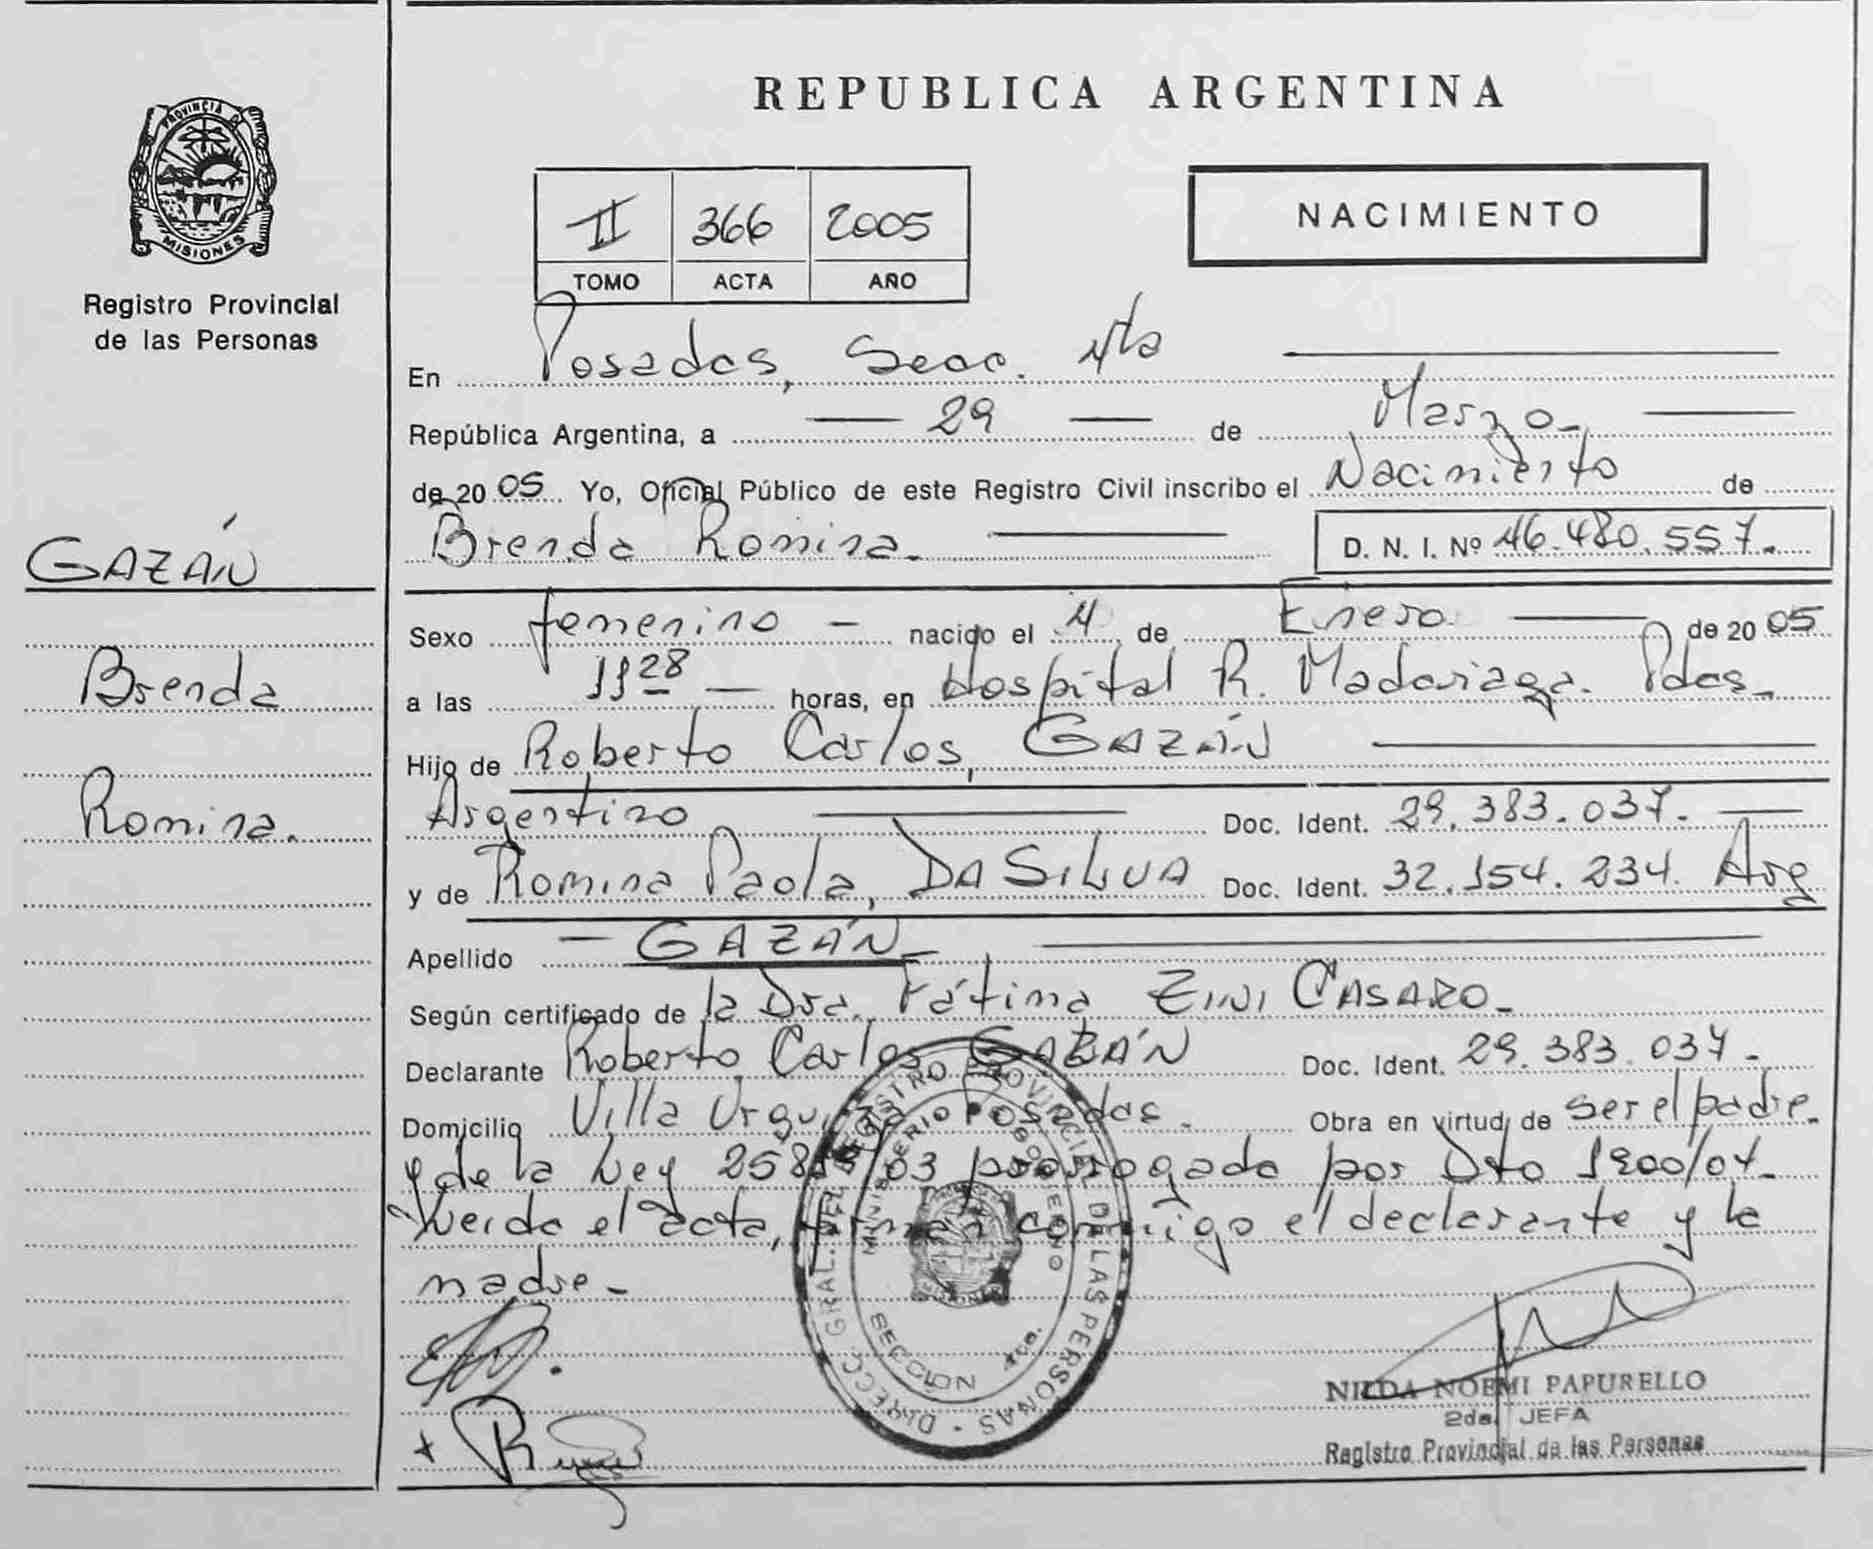 REPUBLICA ARGENTINA
PROVINCIA D
MISIONES
Registro Provincial
de las Personas
II 366 2005
TOMO ACTA AÑO
NACIMIENTO
En Posadas, Secc. 4ta
República Argentina, a 29 de Marzo
de 20 05 Yo, Oficial Público de este Registro Civil inscribo el Nacimiento de
Brenda Romina. D. N. I. Nº 46.480.557.
GAZÁN
Brenda
Romina.
Sexo femenino nacido el 4 de Enero de 20 05
a las 11 28 horas, en Hospital R. Madariaga. Pdas
Hijo de Roberto Carlos, GAZÁN
Argentino Doc. Ident. 29.383.037.
y de Romina Paola, DA SILVA Doc. Ident. 32.154.234. Arg
Apellido GAZÁN
Según certificado de la Dra. Fátima ZINI CASARO
Declarante Roberto Carlos GAZÁN Doc. Ident. 29.383.037
Domicilio Villa Urquiza Posadas. Obra en virtud de ser el padre.
y de la Ley 03 prorrogada por Dto 1200/04
Leida el acta, firman conmigo el declarante y la
madre
DIRECC. GRAL. DEL REGISTRO PROVINCIAL DE LAS PERSONAS
MINISTERIO DE GOBIERNO
SECCIÓN 4ta.
NILDA NOEMI PAPURELLO
2da. JEFA
Registro Provincial de las Personas